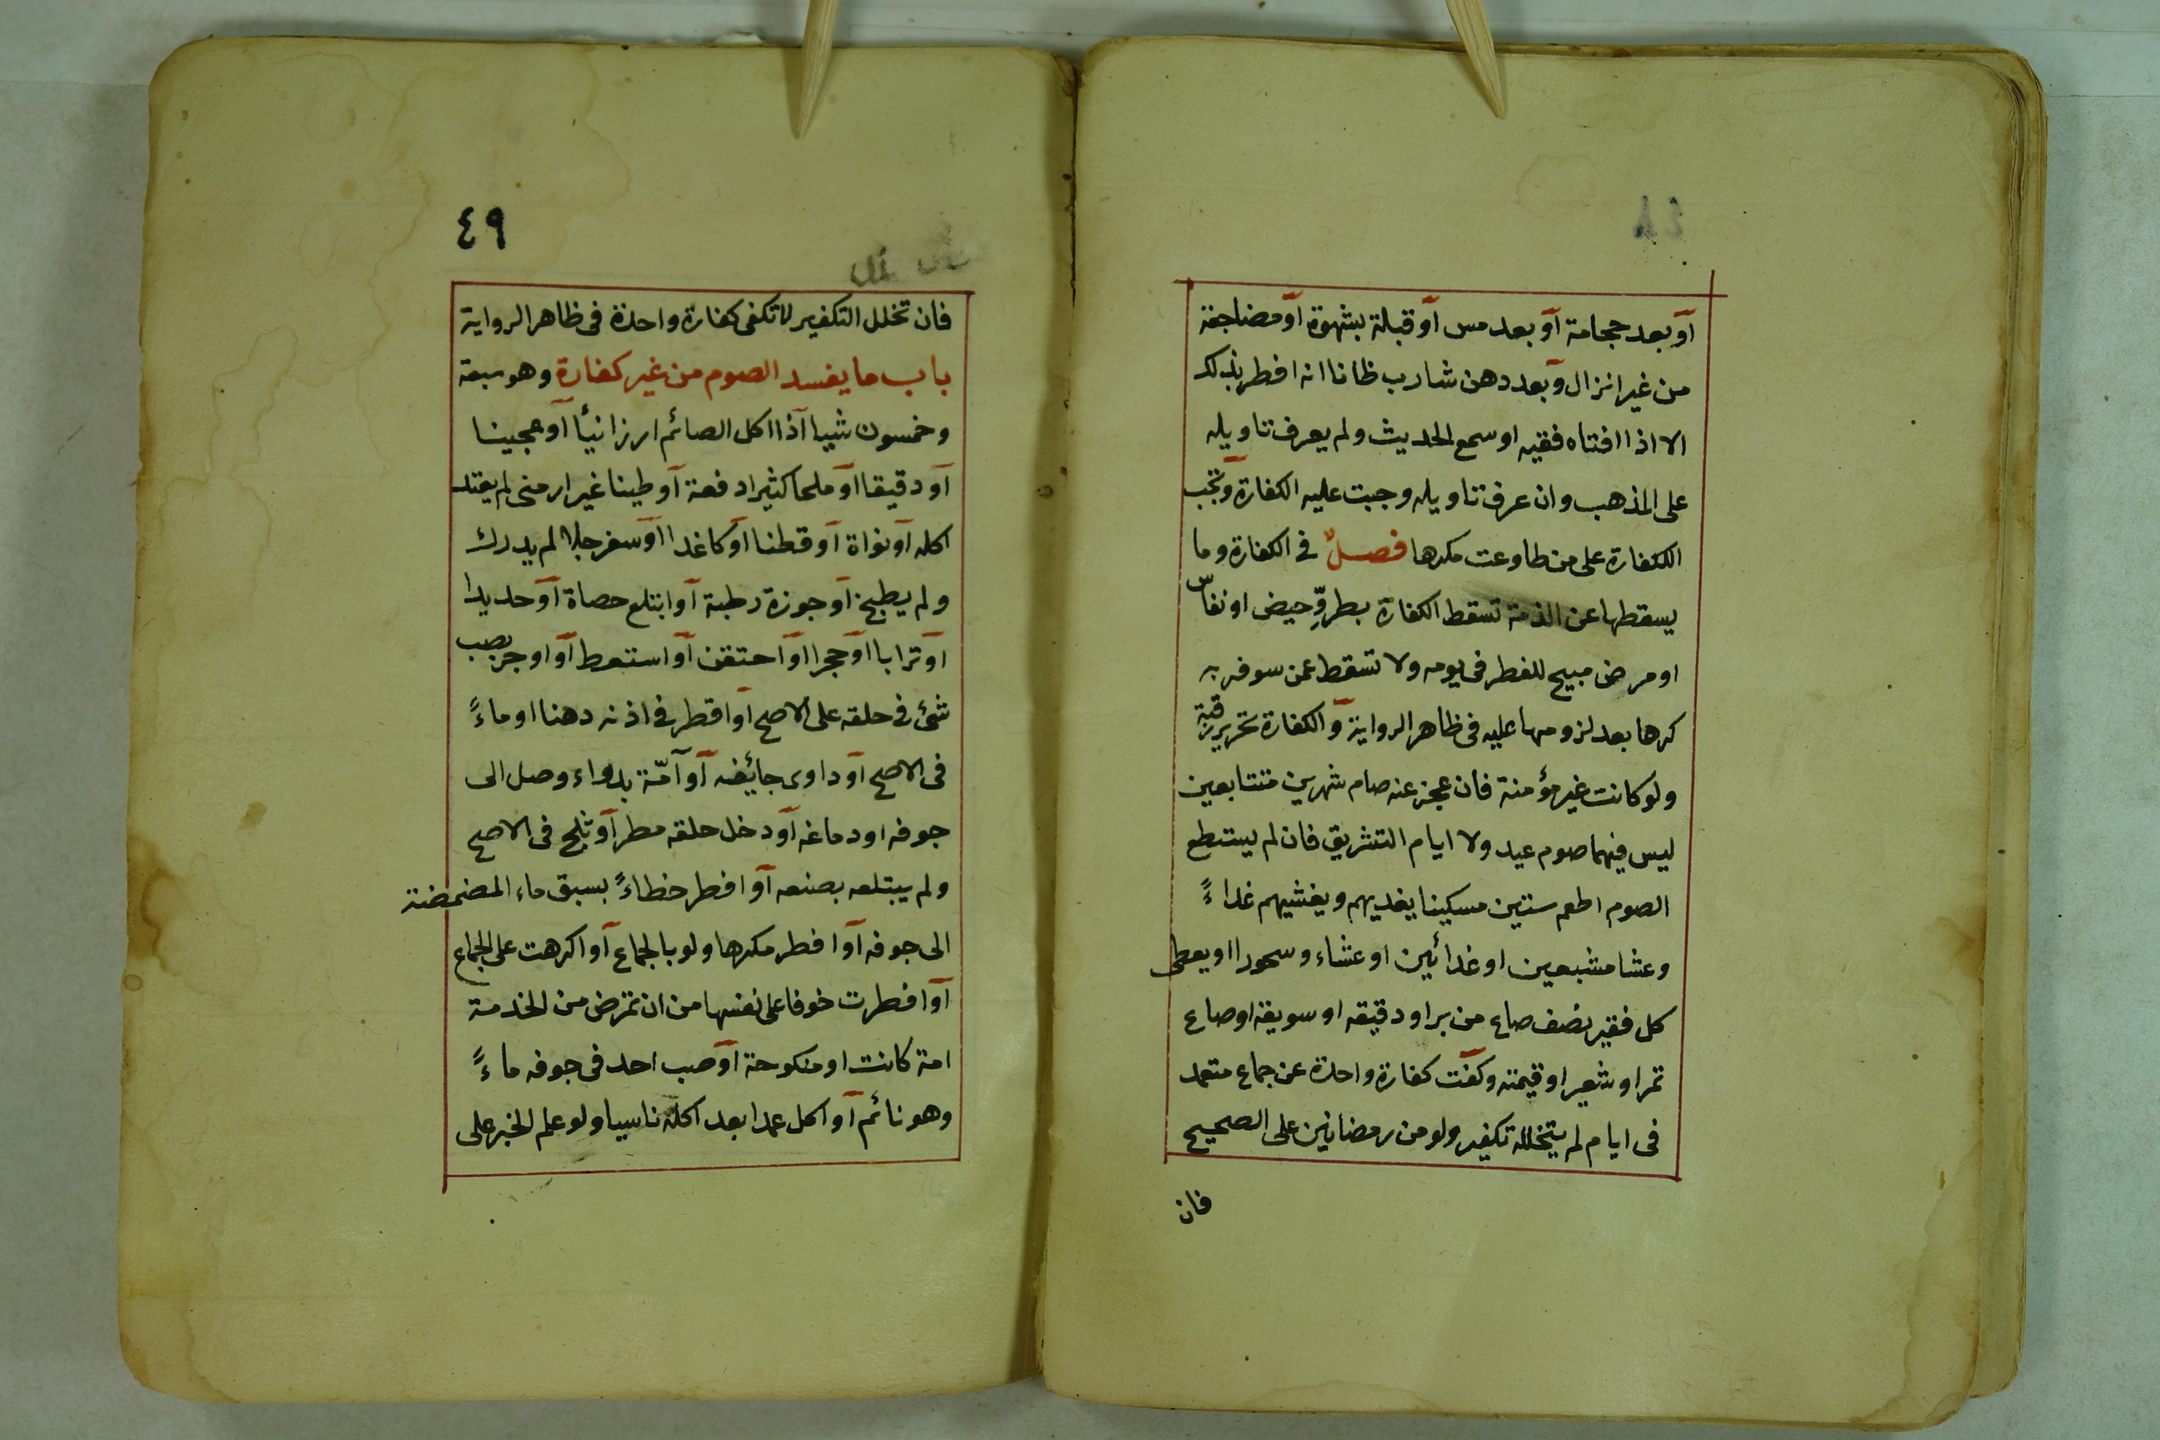 ٤٨
او بعد حجامة او بعد مس او قبلة بشهوة او مضاجعة
من غير انزال وبعد دهن شارب ظانا انه افطر بذلك
الا اذا افتاه فقيه او سمع الحديث ولم يعرف تاويله
على المذهب وان عرف تاويله وجبت عليه الكفارة وتجب
الككفارة على من طاوعت مكرها فصل في الكفارة وما
يسقطها عن الذمة تسقط الكفارة بطروِّ حيض او نفاس
او مرض مبيح للفطر في يومه ولا تسقط عمن سوفر به
كرها بعد لزومها عليه في ظاهر الرواية والكفارة تحرير رقبة
ولو كانت غير مؤمنة فان عجز عنه صام شهرين متتابعين
ليس فيهما صوم عيد ولا ايام التشريق فان لم يستطع
الصوم اطعم ستين مسكينا يغديهم ويغشيهم غداءً
وعشا مشبعين او غدائين او عشاء وسحورا او يعطى
كل فقير نصف صاع من بر او دقيقه او سويقه او صاع
تمر او شعير او قيمته وكفت كفارة واحدة عن جماع متعمد
في ايام لم يتخلله تكفير ولو من رمضانين على الصحيح
فان
٤٩
فان تخلل التكفير لا تكفى كفارة واحدة في ظاهر الرواية
باب ما يفسد الصوم من غير كفارة وهو سبعة
وخمسون شيا اذا اكل الصائم ارزا نيأ او عجينا
او دقيقا او ملحا كثيرا دفعة او طينا غير ارمنى لم يعتد
اكله او نواة او قطنا او كاغدا او سفرجلا لم يدرك
ولم يطبخ او جوزة رطبة او ابتلع حصاة او حديدا
او ترابا او حجرا او احتقن او استعط او اوجر بصب
شئ في حلقه على الاصح او اقطر في اذنه دهنا او ماءً
في الاصح او داوى جائفه او آمّة بدواء وصل الى
جوفه او دماغه او دخل حلقه مطر او ثلج في الاصح
ولم يبتلعه بصنعه او افطر خطاءً بسبق ماء المضمضة
الى جوفه او افطر مكرها ولو بالجماع او اكرهت على الجماع
او افطرت خوفا على نفسها من ان تمرض من الخدمة
امة كانت او منكوحة او صب احد في جوفه ماءً
وهو نائم او اكل عمدا بعد اكله ناسيا ولو علم الخبر على